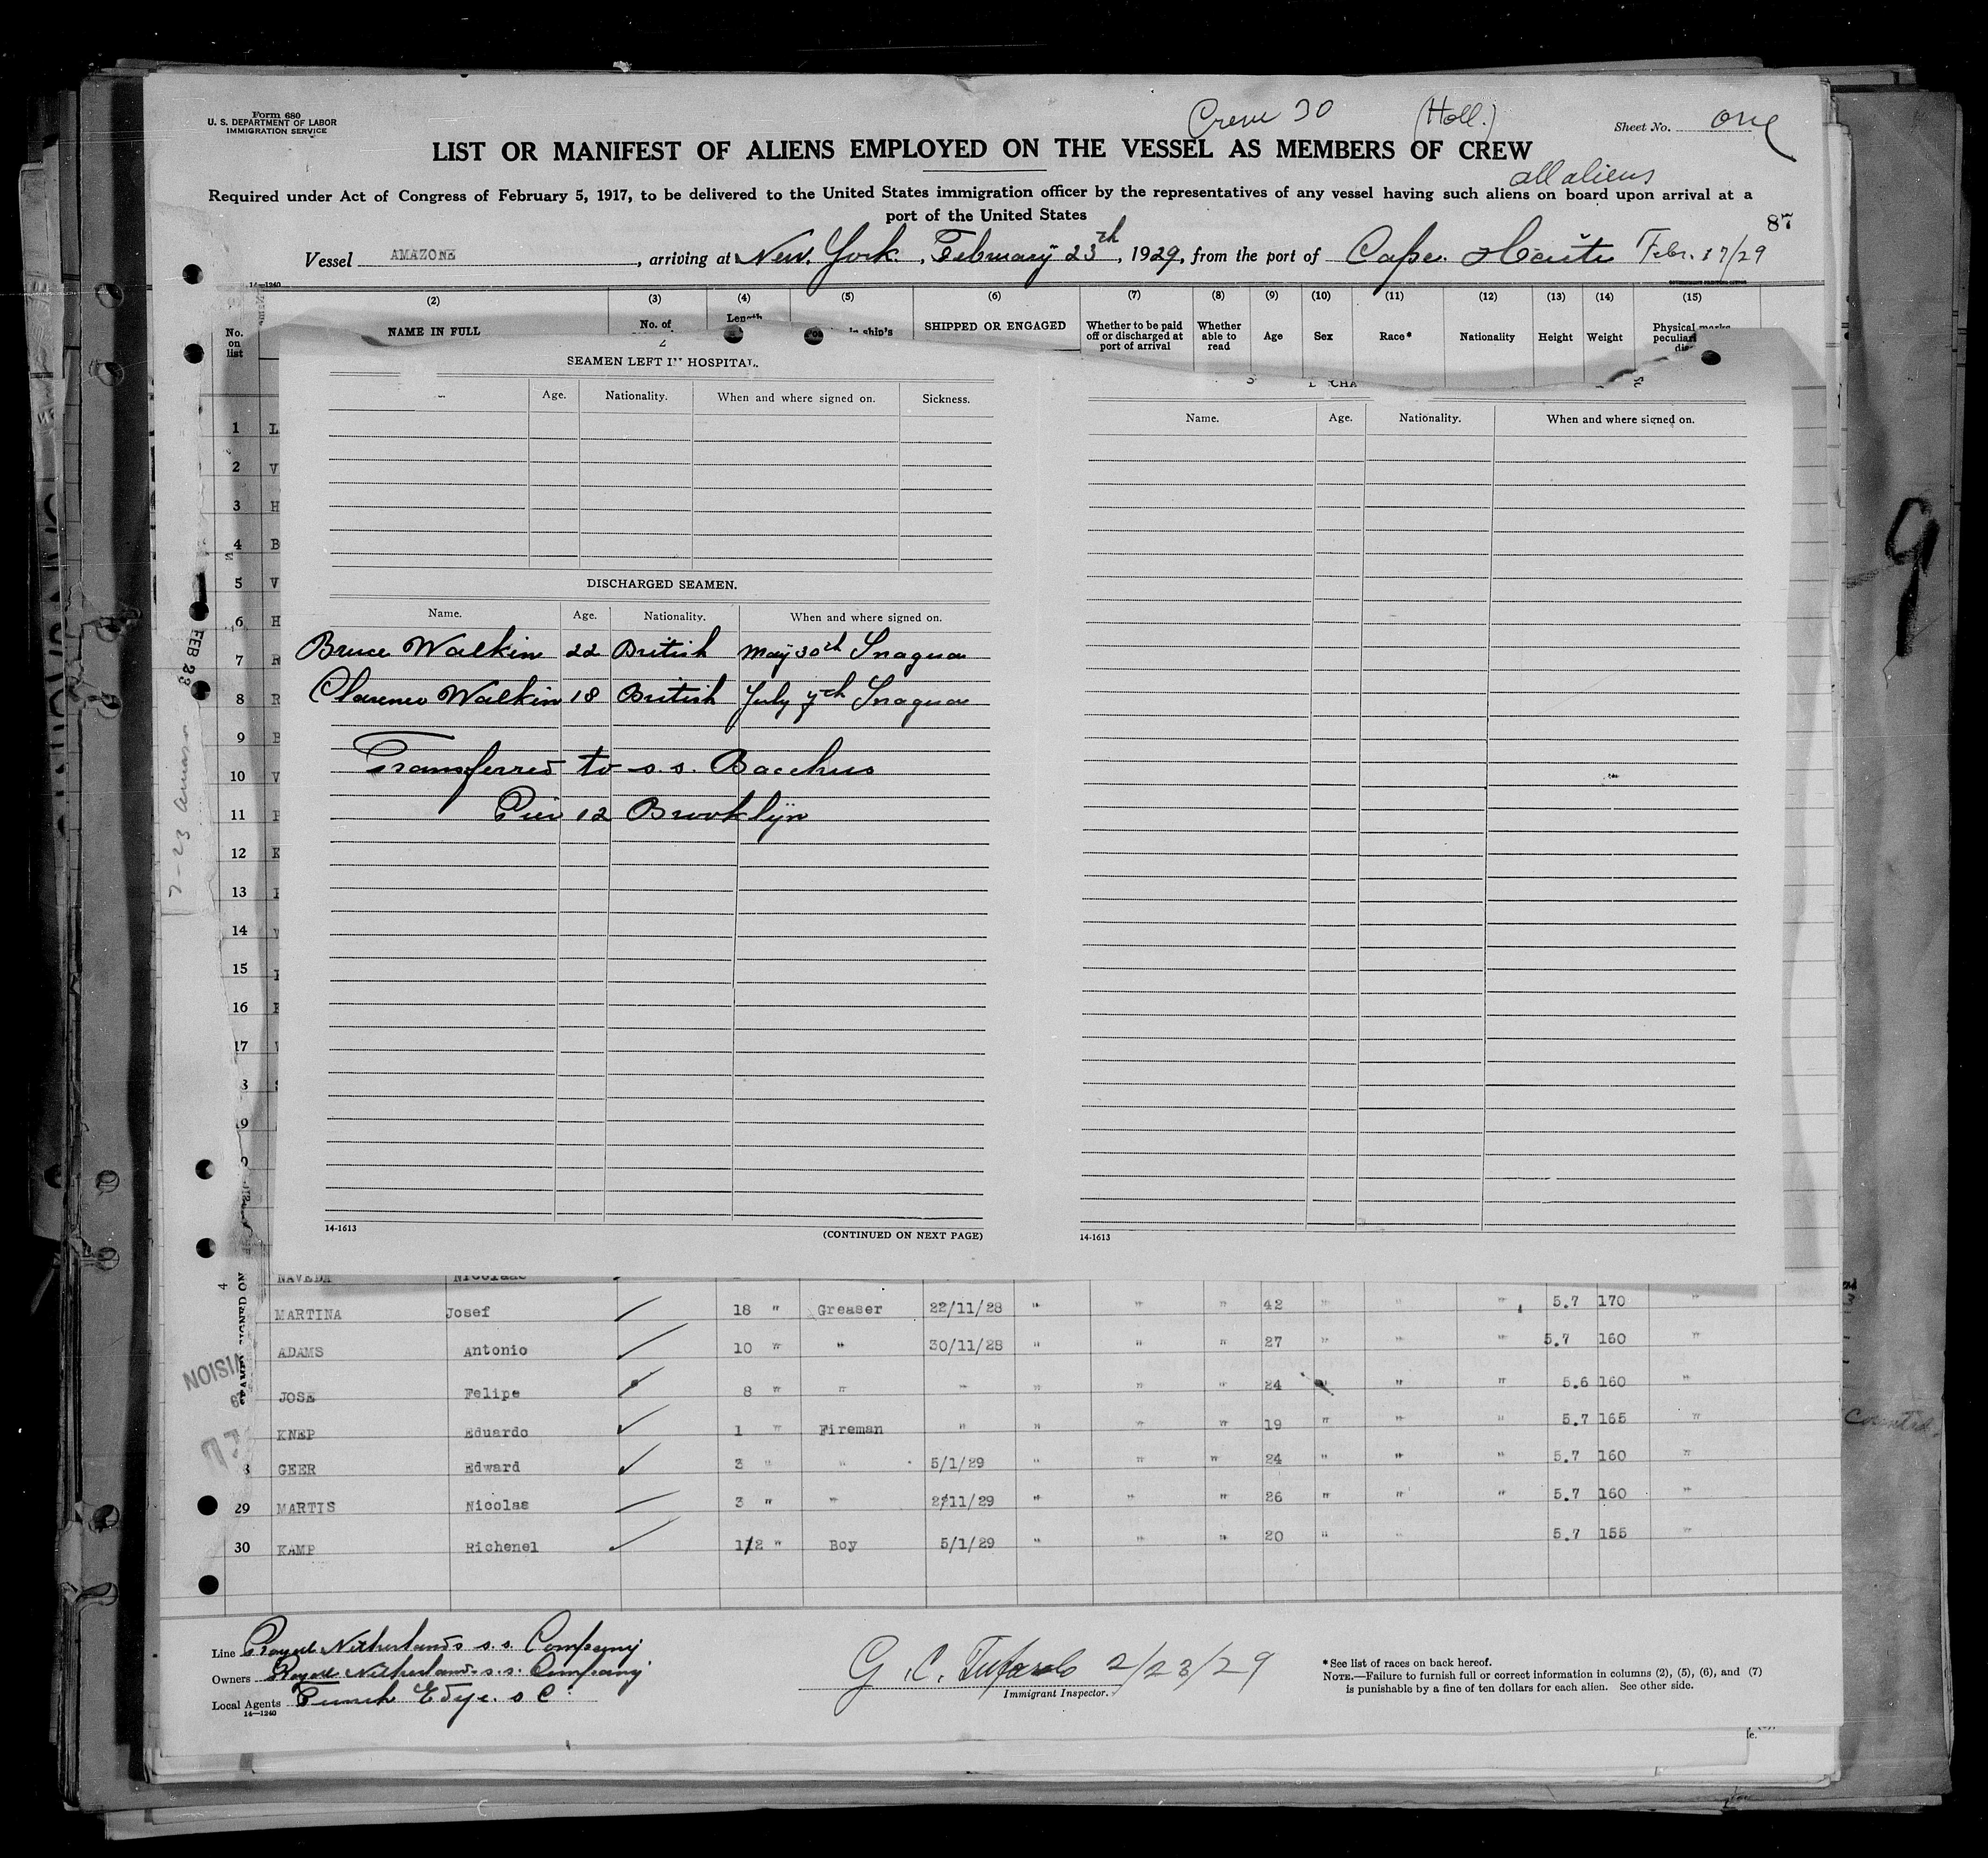 Form 680
U. S. DEPARTMENT OF LABOR
IMMIGRATION SERVICE
Crew 30 (Holl.)
Sheet No. one
LIST OR MANIFEST OF ALIENS EMPLOYED ON THE VESSEL AS MEMBERS OF CREW
all aliens
Required under Act of Congress of February 5, 1917, to be delivered to the United States immigration officer by the representatives of any vessel having such aliens on board upon arrival at a
port of the United States
87
Vessel AMAZONE, arriving at New York, February 23th, 1929, from the port of Cape Febr. 17/29
14—1240
(2) (3) (4) (5) (6) (7) (8) (9) (10) (11) (12) (13) (14) (15)
No. on list NAME IN FULL No. of Length ship's SHIPPED OR ENGAGED Whether to be paid off or discharged at port of arrival Whether able to read Age Sex Race* Nationality Height Weight Physical marks
SEAMEN LEFT IN HOSPITAL.
Age. Nationality. When and where signed on. Sickness.
Name. Age. Nationality. When and where signed on.
DISCHARGED SEAMEN.
Name. Age. Nationality. When and where signed on.
Bruce Walkin 22 British May 30th Inagua
Clarence Walkin 18 British July 7th Inagua
Transferred to s.s. Bacchus
Pier 12 Brooklyn
1 L
2 V
3 H
4 B
5 V
6 H
7 R
8 R
9 B
10 V
11
12 K
13
14
15
16
17
FEB 23
14-1613 (CONTINUED ON NEXT PAGE) 14-1613
NAVEDA Nicolaas
MARTINA Josef 18 " Greaser 22/11/28 " " " 42 " " " 5.7 170 "
ADAMS Antonio 10 " " 30/11/28 " " " 27 " " " 5.7 160 "
JOSE Felipe 8 " " " " " " 24 " " " 5.6 160 "
KNEP Eduardo 1 " Fireman " " " " 19 " " " 5.7 165 "
GEER Edward 3 " " 5/1/29 " " " 24 " " " 5.7 160 "
29 MARTIS Nicolas 3 " " 22/11/29 " " " 26 " " " 5.7 160 "
30 KAMP Richenel 1/2 " Boy 5/1/29 " " " 20 " " 5.7 155 "
Line Royal Netherlands s.s. Company
Owners Royal Netherlands s.s. Company
Local Agents Funch Edye & C
14—1240
2/23/29
Immigrant Inspector.
* See list of races on back hereof.
NOTE.—Failure to furnish full or correct information in columns (2), (5), (6), and (7)
is punishable by a fine of ten dollars for each alien. See other side.
9